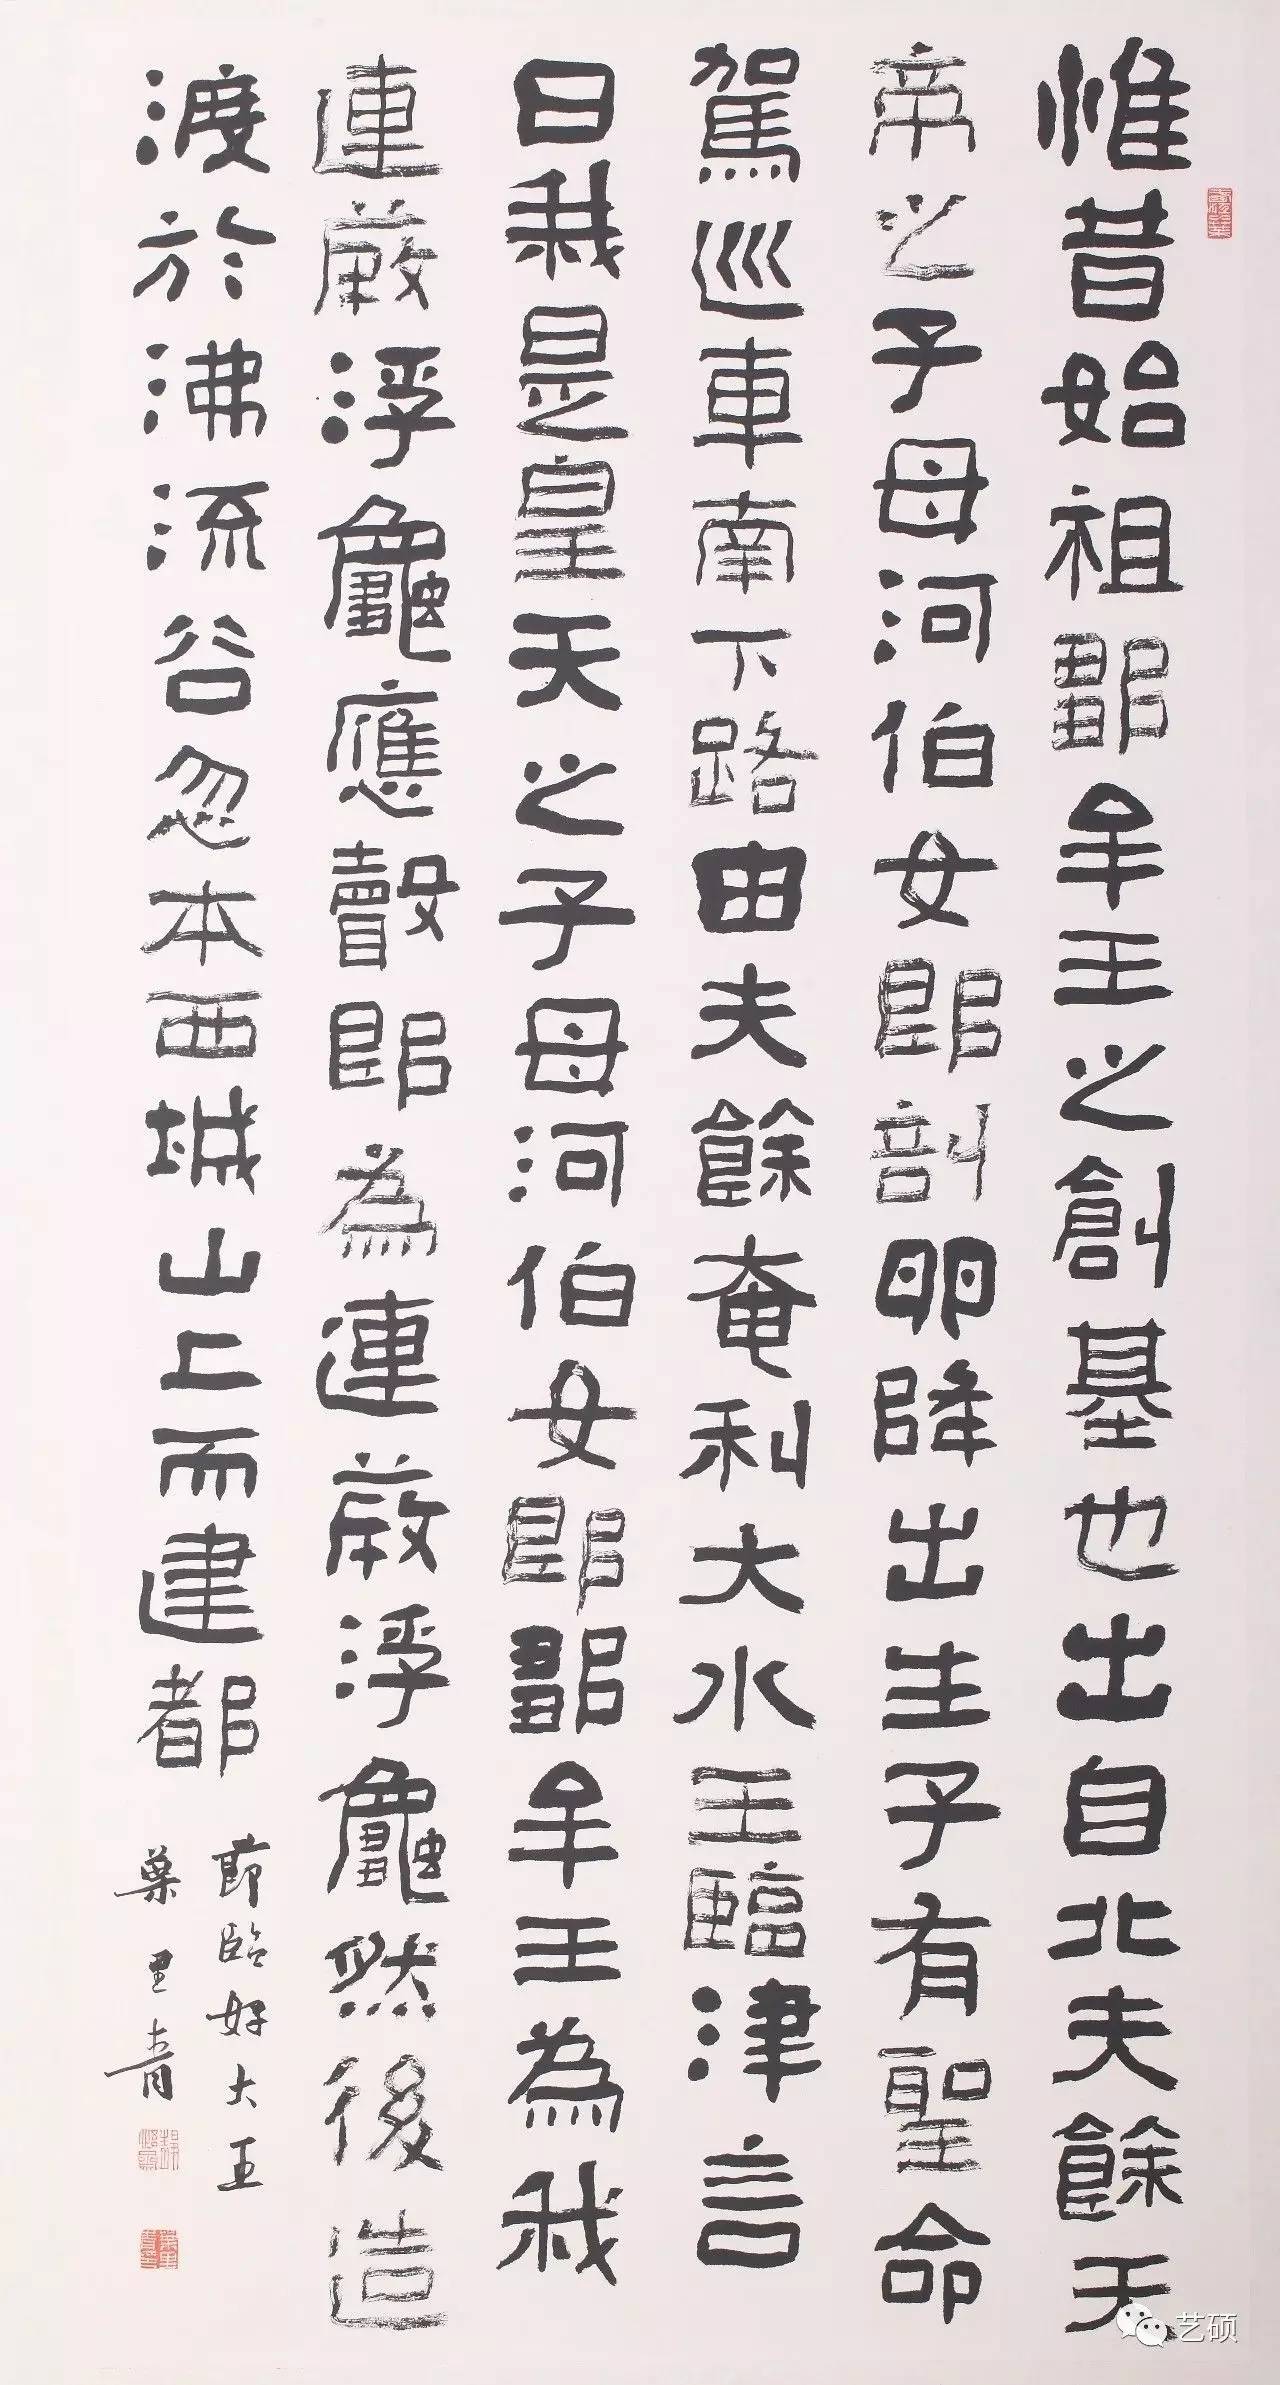 惟昔始祖鄒牟王之創基也出自北夫餘天
帝之子母河伯女郎剖卵降出生子有聖命
駕巡車南下路由夫餘奄利大水王臨津言
曰我是皇天之子母河伯女郎鄒牟王為我
連蔽浮龜應聲即為連蔽浮龜然後造
渡於沸流谷忽本西城山上而建都
節臨好大王
葉里青
艺硕